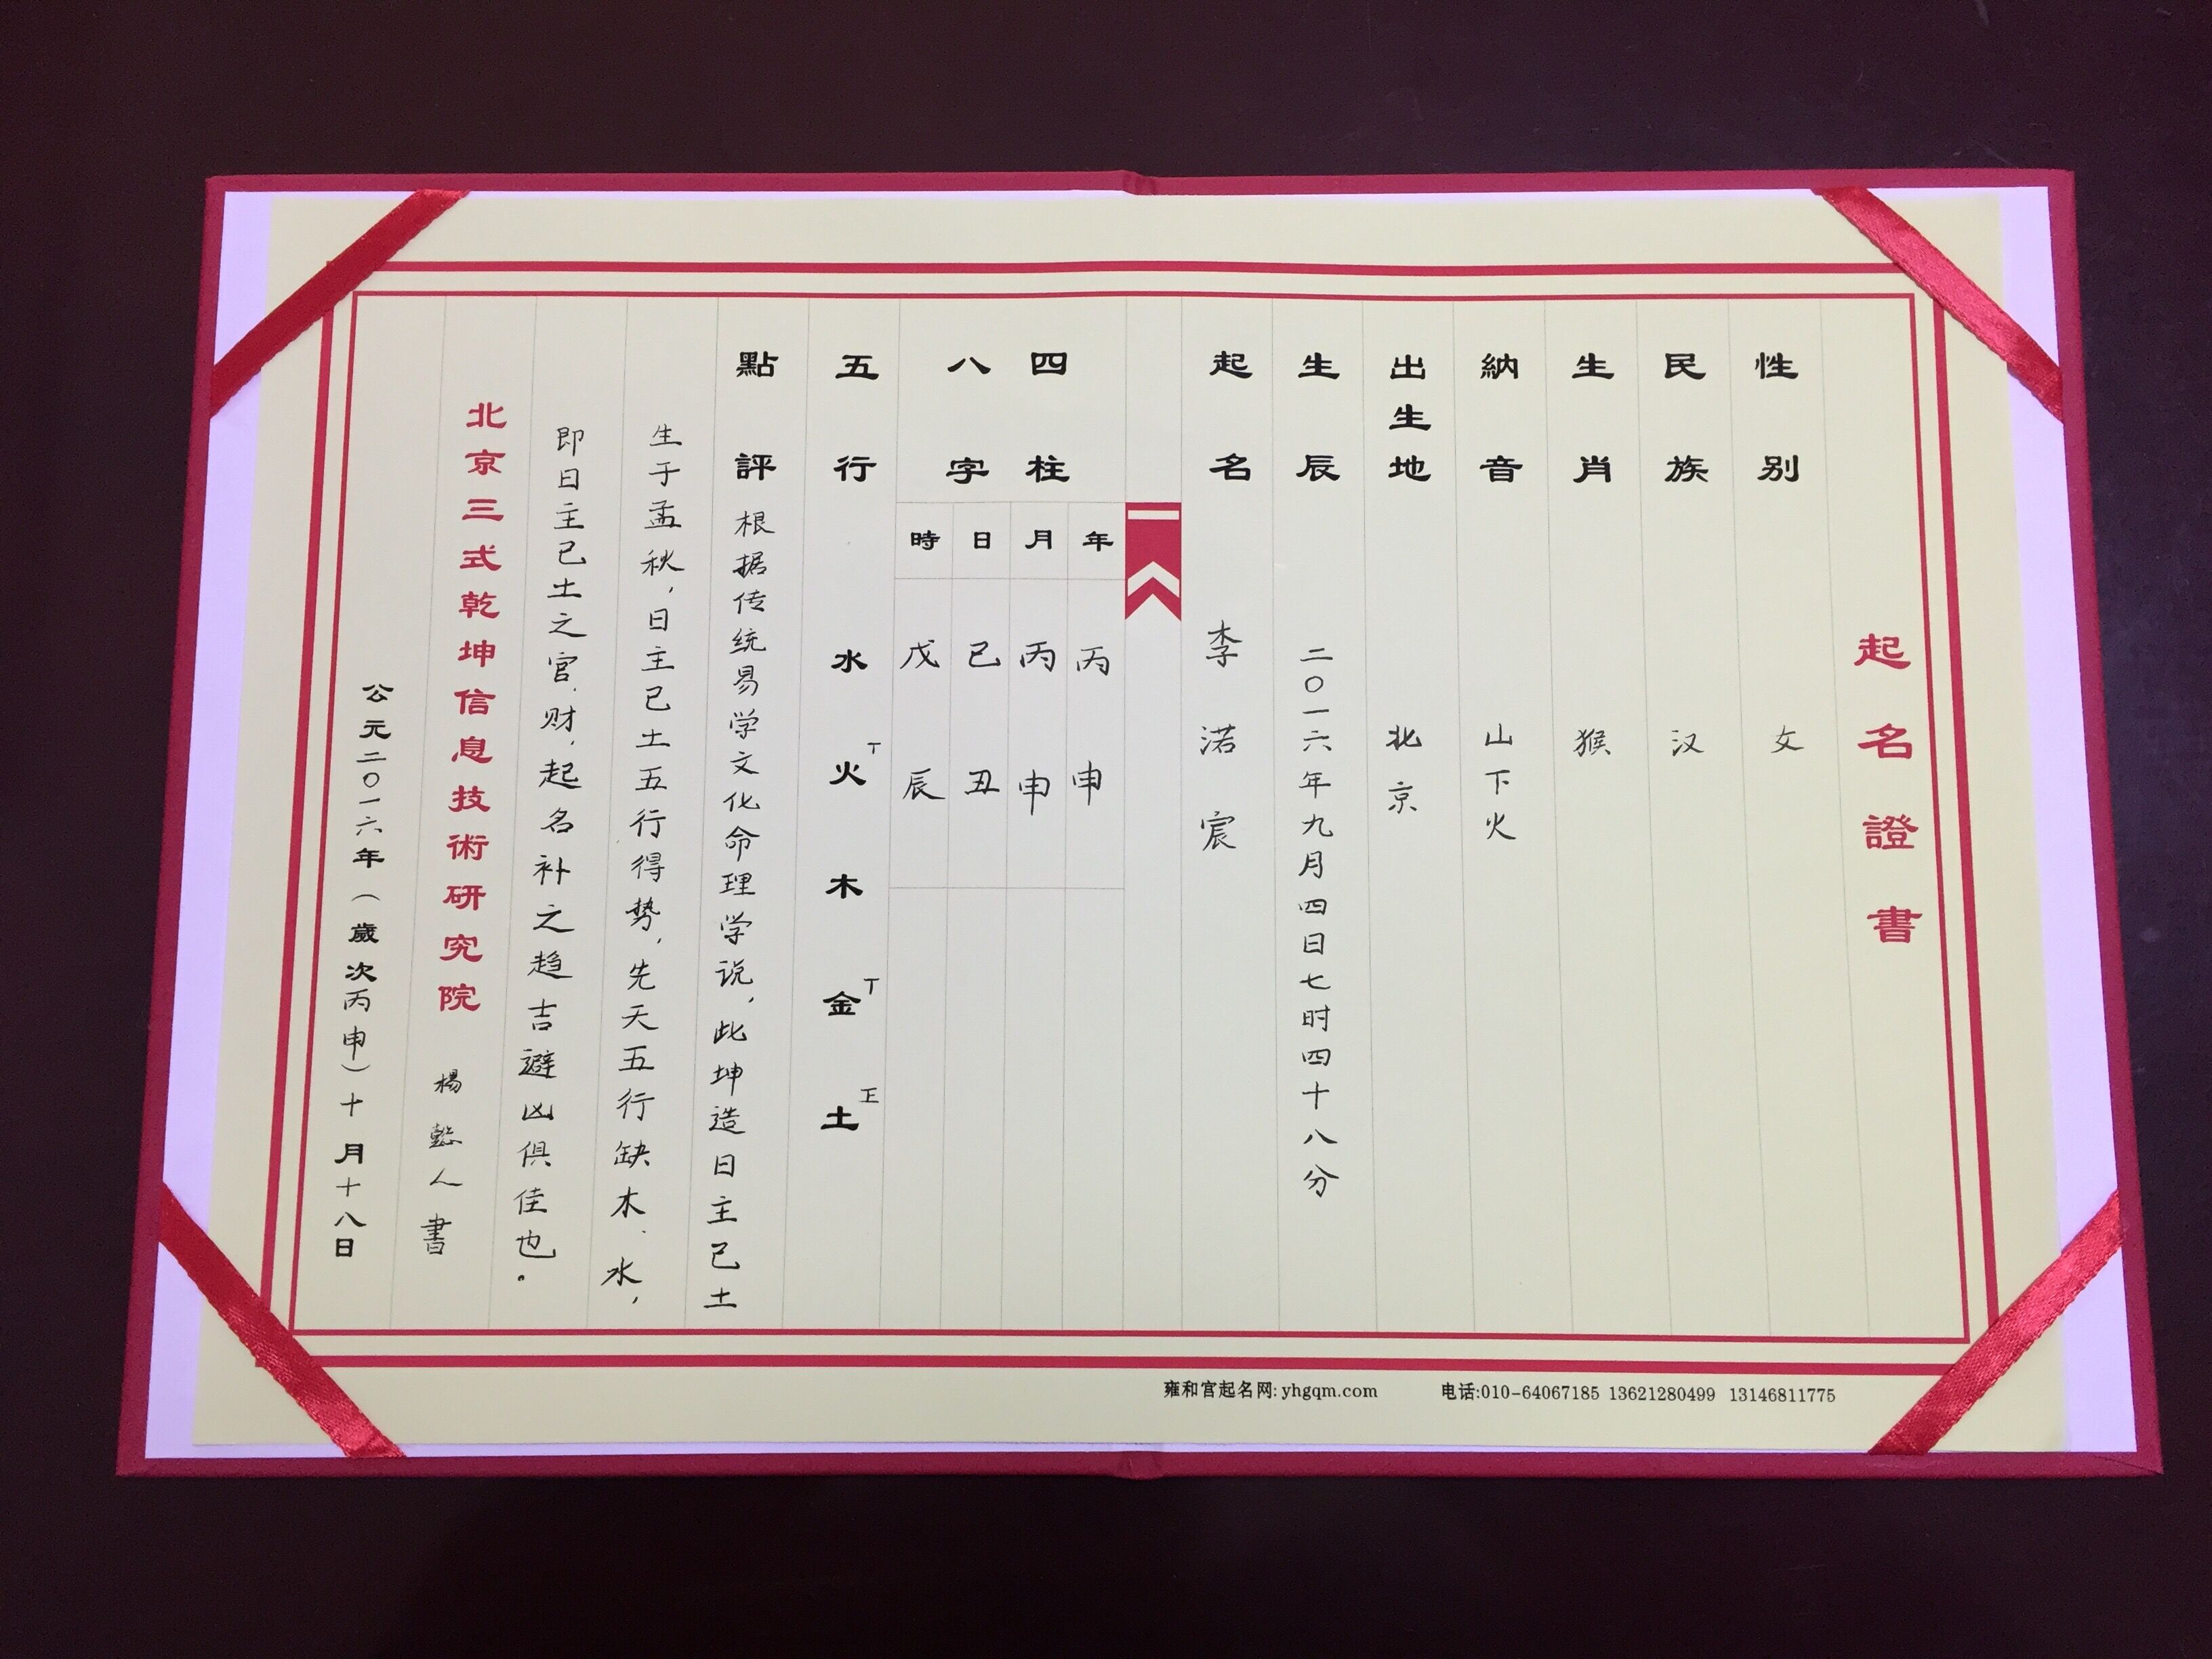 起名證書
性别 女
民族 汉
生肖 猴
納音 山下火
出生地 北京
生辰 二〇一六年九月四日七时四十八分
起名 李渃宸
四柱
八字
年 丙申
月 丙申
日 己丑
時 戊辰
五行 水 火丅 木 金丅 土𤣩
點評 根据传统易学文化命理学说，此坤造日主己土
生于孟秋，日主己土五行得势，先天五行缺木、水，
即日主己土之官、财，起名补之趋吉避凶俱佳也。
北京三式乾坤信息技術研究院 楊懿人書
公元二〇一六年（歲次丙申）十月十八日
雍和宫起名网: yhgqm.com 电话:010-64067185 13621280499 13146811775